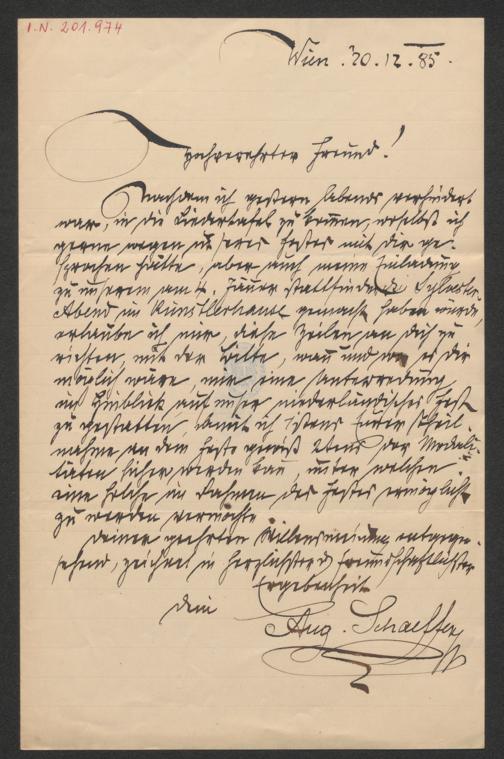 I.N. 201.974
Wien. 30.12.85.
Hochverehrter Freund!
Nachdem ich gestern Abends verhindert
war, in die Liedertafel zu kommen, woselbst ich
gerne wegen unseres Festes mit dir ge-
sprochen hätte, aber auch meine Einladung
zu unserem am 4. Jäner stattfindende Sylvester
Abend im Künstlerhause gemacht haben würde,
erlaube ich mir, diese Zeilen an dich zu
richten, mit der Bitte, wann und wo es dir
möglich wäre, mir eine Unterredung
im Hinblick auf unser niederländisches Fest
zu gestatten, damit ich 1stens Eurer Theil-
nahme an dem Feste gewiß 2tens der Modali-
täten sicher werden kann, unter welchen
eine solche im Rahmen des Festes ermöglicht
zu werden vermöchte
Deiner geehrten Willensmeinung entgegen
sehend, zeichnet in herzlichster & freundschaftlichster
Ergebenheit
dein
Aug. Schaeffer